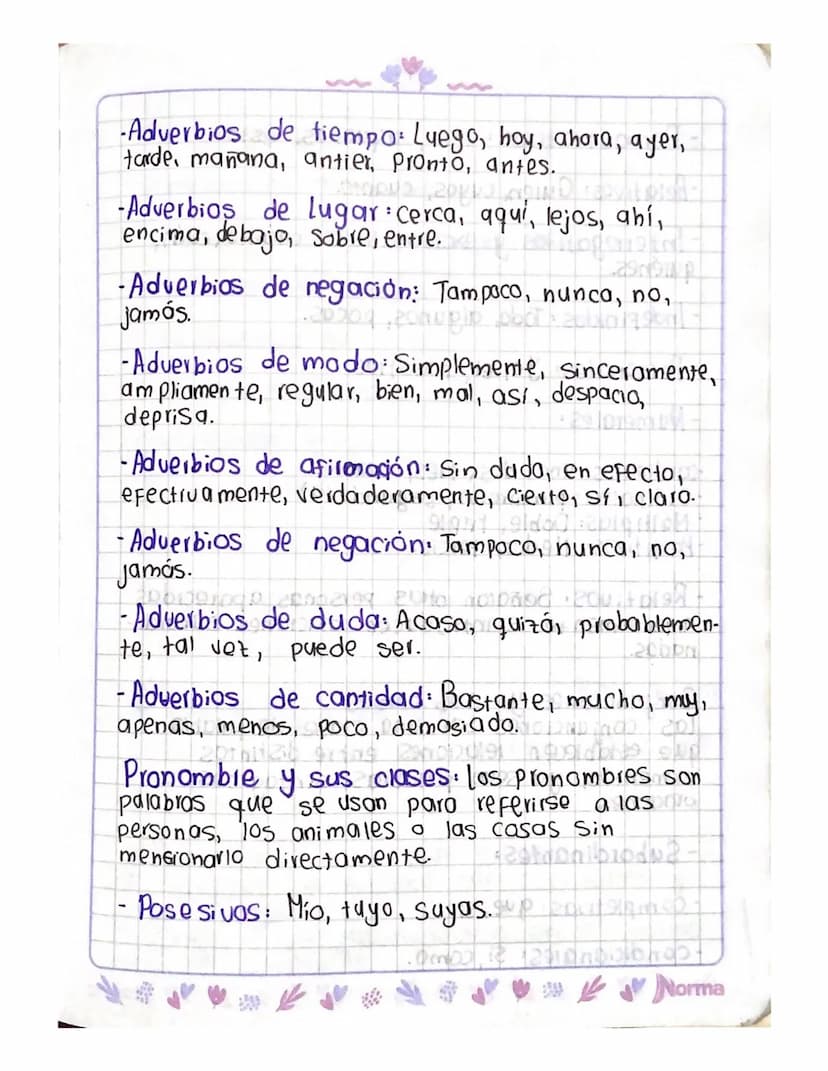 -Adverbios de tiempo: Luego, hoy, ahora, ayer,
tarde, mañana, antier, pronto, antes.
-Adverbios de lugar: cerca, aquí, lejos, ahí,
encima, debajo, sobre, entre.
-Adverbios de negación: Tampoco, nunca, no,
jamás.
-Adverbios de modo: Simplemente, sinceramente,
ampliamente, regular, bien, mal, así, despacio,
deprisa.
-Adverbios de afirmación: Sin duda, en efecto,
efectivamente, verdaderamente, cierto, sí, claro.
-Adverbios de negación: Tampoco, nunca, no,
jamás.
-Adverbios de duda: Acaso, quizá, probablemen-
te, tal vez, puede ser.
-Adverbios de cantidad: Bastante, mucho, muy,
apenas, menos, poco, demasiado.
Pronombre y sus clases: los pronombres son
palabras que se usan para referirse a las
personas, los animales o las cosas sin
mensionarlo directamente.
- Posesivos: Mío, tuyo, suyas.
Norma